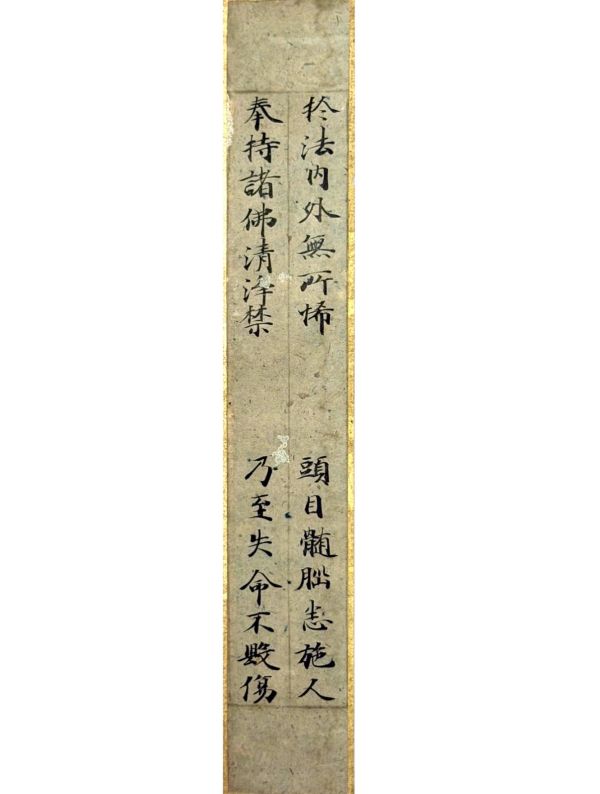 扵法内外無所悕　頭目髓腦悉施人
奉持諸佛清浄禁　乃至失命不毀傷